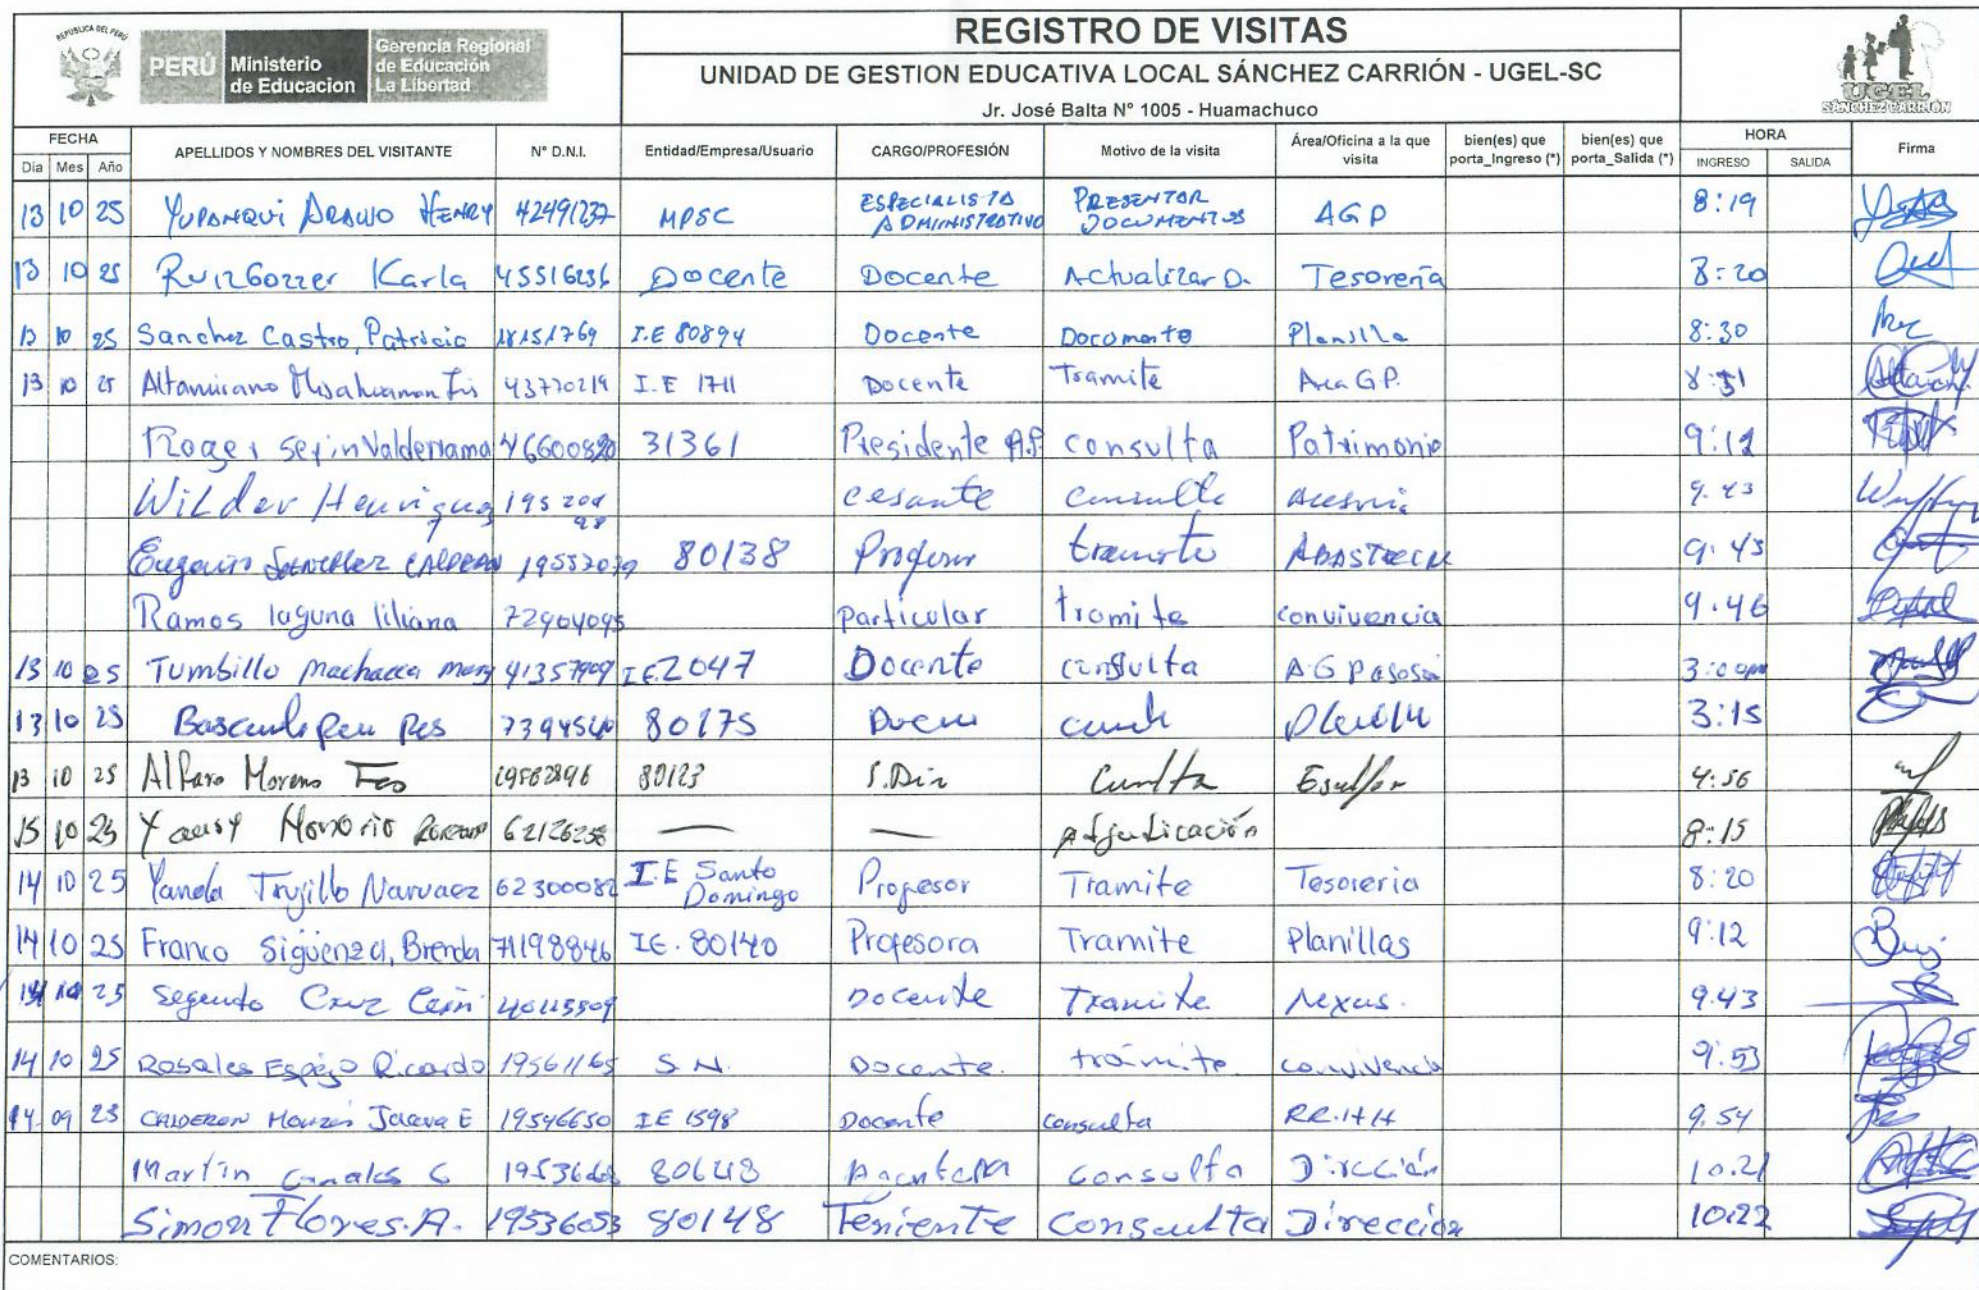 REPUBLICA DEL PERU
PERÚ Ministerio de Educacion Gerencia Regional de Educación La Libertad
REGISTRO DE VISITAS
UNIDAD DE GESTION EDUCATIVA LOCAL SÁNCHEZ CARRIÓN - UGEL-SC
Jr. José Balta N° 1005 - Huamachuco
UGEL SÁNCHEZ CARRIÓN
FECHA APELLIDOS Y NOMBRES DEL VISITANTE N° D.N.I. Entidad/Empresa/Usuario CARGO/PROFESIÓN Motivo de la visita Área/Oficina a la que visita bien(es) que porta_Ingreso (*) bien(es) que porta_Salida (*) HORA Firma
Día Mes Año INGRESO SALIDA
13 10 25 YUPANQUI ARAUJO HENRY 42491237 MPSC ESPECIALISTA ADMINISTRATIVO PRESENTAR DOCUMENTOS AGP 8:19
13 10 25 Ruiz Gozzer Karla 45516236 Docente Docente Actualizar D. Tesorería 8:20
13 10 25 Sanchez Castro, Patricia 18151769 I.E 80894 Docente Documento Planilla 8:30
13 10 25 Altamirano 43770219 I.E 1711 Docente Tramite G.P. 8:31
Roger Valderrama 46600820 31361 Presidente consulta Patrimonio 9:12
Wilder Henriquez 195 204 cesante consulta 9.43
Eugenio CALDERON 80138 Profesor tramite 9.45
Ramos laguna liliana 72904095 Particular tramite convivencia 9.46
13 10 25 Tumbillo Machacca 41357909 I.E 2047 Docente consulta 3:00pm
13 10 25 80175 3:15
13 10 25 Alfaro Moreno 80123 S.Dir 4:56
15 10 25 Honorio 62126258 — — Adjudicación 8:15
14 10 25 Yanela Trujillo Narvaez 62300082 I.E Santo Domingo Profesor Tramite Tesoreria 8:20
14 10 25 Franco Sigüenza, Brenda 71198846 IE. 80140 Profesora Tramite Planillas 9:12
14 10 25 Segundo Cruz 40115509 Docente Tramite Nexus. 9.43
14 10 25 Rosales Espejo Ricardo 19561165 S.N. Docente. trámite convivencia 9:53
14 09 25 CALDERON 19546650 IE 1598 Docente consulta RR.HH 9.54
Martin Canales C 80648 consulta Dirección 10.21
Simon Flores. A. 19536053 80148 Teniente consulta Dirección 10:22
COMENTARIOS: